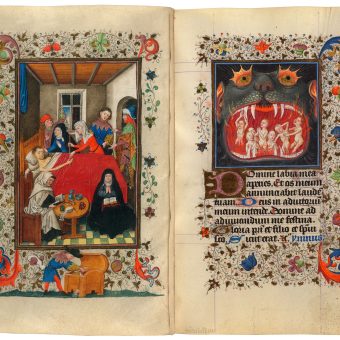 Domine labia mea
aperies. Et os meum
annunciabit laudē
tuam Deus in adiutoriū
meum intende Domine ad
adiuuandum me festina
Gloria pr̄i et filio et spiri
Sicut erat